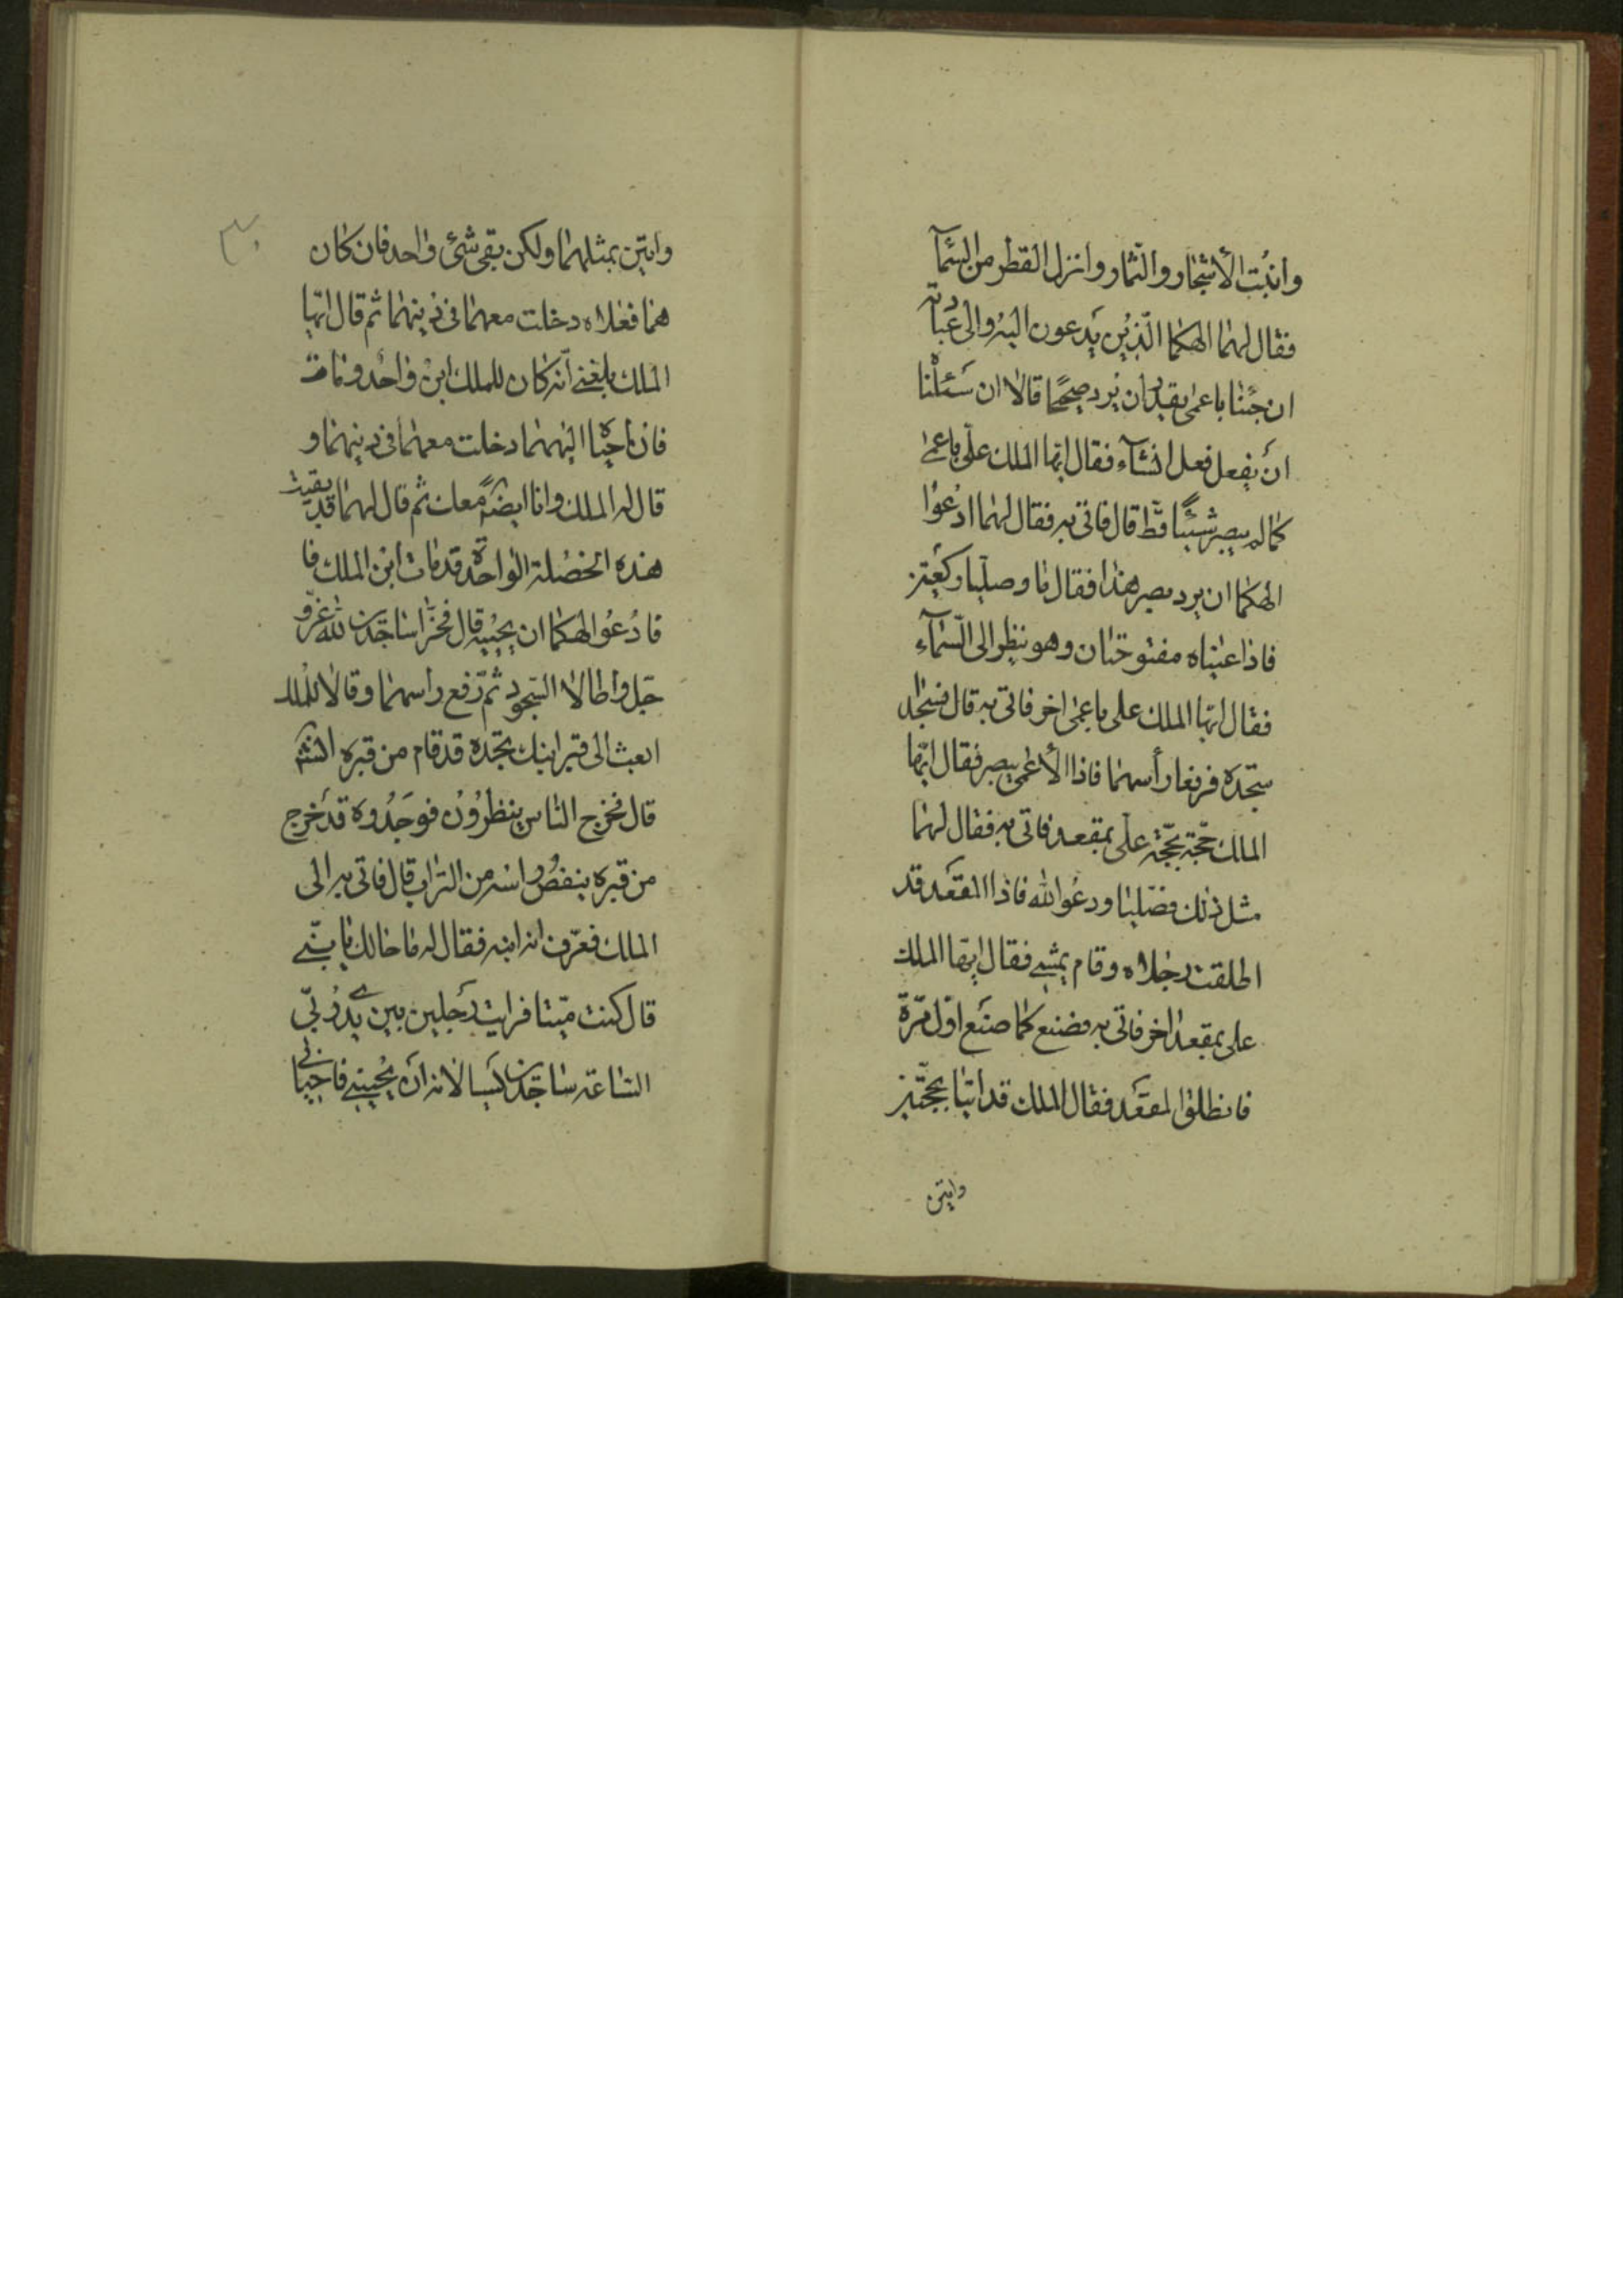 وانبت الأشجار والثمار وانزل القطر من السمآ
فقال لهما الهكما الّذين يدعون اليه والى عبادته
ان جئنا باعمى يقدر ان يرد صحيحًا قالا ان سئلنا
ان يفعل فعل انشآء فقال ايّها الملك علّى باعمى
كما لم يبصر شيئًا قطّ قال فاتى به فقال لهما ادعوا
الهكما ان يرد بصر هذا فقاما وصليا ركعتين
فاذا عيناه مفتوحتان وهو ينظر الى السّمآء
فقال ايّها الملك على باعمى اخر فاتى به قال فسجدا
سجدة فرفعا رأسهما فاذا الأعمى يبصر فقال ايّها
الملك حجّة بحجّة علّى بمقعد فاتى به فقال لهما
مثل ذلك فصلّيا ودعوا الله فاذا المقعد قد
اطلقت رجلاه وقام يمشي فقال ايّها الملك
على بمقعد اخر فاتى به فصنع كما صنع اوّل مرّة
فانطلق المقعد فقال الملك قد اتيا بحجّتين
واتين
واتين بمثلهما ولكن بقى شئ واحد فان كان
هما فعلاه دخلت معهما فى دينهما ثم قال ايّها
الملك بلغني أنّه كان للملك ابن واحد ومات
فان احياه الههما دخلت معهما فى دينهما و
قال له الملك وانا ايضًا معك ثم قال لهما قد بقيت
هذه الخصلة الواحدة قد مات ابن الملك فا
فادعوا الهكما ان يحييه قال فخرّا ساجدين لله عزّو
جل واطالا السّجود ثم رفع راسهما وقالا للملك
ابعث الى قبر ابنك تجده قد قام من قبره انشآ
قال فخرج الناس ينظرون فوجدوه قد خرج
من قبره ينفض راسه من التراب قال فاتى به الى
الملك فعرف انه ابنه فقال له ما حالك يا بنّي
قال كنت ميّتا فرايت رجلين بين يدي ربّي
السّاعة ساجدين يسالانه ان يحييني فاحياني